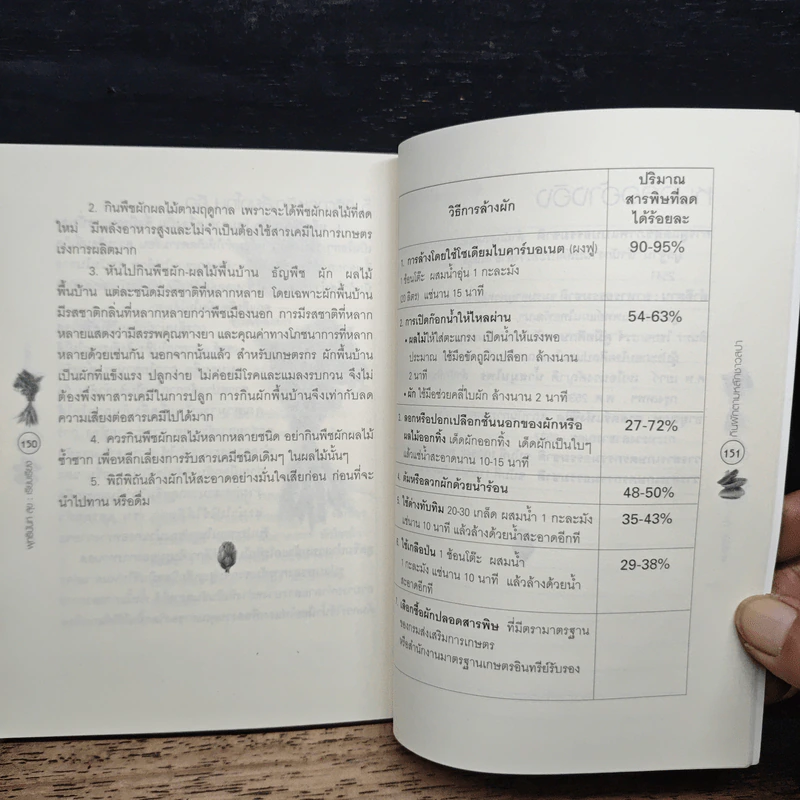 2. กินพืชผักผลไม้ตามฤดูกาล เพราะจะได้พืชผักผลไม้ที่สด
ใหม่ มีพลังอาหารสูงและไม่จำเป็นต้องใช้สารเคมีในการเกษตร
เร่งการผลิตมาก
3. หันไปกินพืชผัก-ผลไม้พื้นบ้าน ธัญพืช ผัก ผลไม้
พื้นบ้าน แต่ละชนิดมีรสชาติที่หลากหลาย โดยเฉพาะผักพื้นบ้าน
มีรสชาติกลิ่นที่หลากหลายกว่าพืชเมืองนอก การมีรสชาติที่หลาก
หลายแสดงว่ามีสรรพคุณทางยา และคุณค่าทางโภชนาการที่หลาก
หลายด้วยเช่นกัน นอกจากนั้นแล้ว สำหรับเกษตรกร ผักพื้นบ้าน
เป็นผักที่แข็งแรง ปลูกง่าย ไม่ค่อยมีโรคและแมลงรบกวน จึงไม่
ต้องพึ่งพาสารเคมีในการปลูก การกินผักพื้นบ้านจึงเท่ากับลด
ความเสี่ยงต่อสารเคมีไปได้มาก
4. ควรกินพืชผักผลไม้หลากหลายชนิด อย่ากินพืชผักผลไม้
ซ้ำซาก เพื่อหลีกเลี่ยงการรับสารเคมีชนิดเดิมๆ ในผลไม้นั้นๆ
5. พิถีพิถันล้างผักให้สะอาดอย่างมั่นใจเสียก่อน ก่อนที่จะ
นำไปทาน หรือดื่ม
150
วิธีการล้างผัก
ปริมาณ
สารพิษที่ลด
ได้ร้อยละ
1. การล้างโดยใช้โซเดียมไบคาร์บอเนต (ผงฟู)
90-95%
1 ช้อนโต๊ะ ผสมน้ำอุ่น 1 กะละมัง
(20 ลิตร) แช่นาน 15 นาที
2. การเปิดก๊อกน้ำให้ไหลผ่าน
54-63%
• ผลไม้ให้ใส่ตะแกรง เปิดน้ำให้แรงพอ
ประมาณ ใช้มือขัดถูผิวเปลือก ล้างนาน
2 นาที
• ผัก ใช้มือช่วยคลี่ใบผัก ล้างนาน 2 นาที
3. ลอกหรือปอกเปลือกชั้นนอกของผักหรือ
27-72%
ผลไม้ออกทิ้ง เด็ดผักออกทิ้ง เด็ดผักเป็นใบๆ
แล้วแช่น้ำสะอาดนาน 10-15 นาที
4. ต้มหรือลวกผักด้วยน้ำร้อน
48-50%
5. ใช้ด่างทับทิม 20-30 เกล็ด ผสมน้ำ 1 กะละมัง
35-43%
แช่นาน 10 นาที แล้วล้างด้วยน้ำสะอาดอีกที
ใช้เกลือป่น 1 ช้อนโต๊ะ ผสมน้ำ
29-38%
1 กะละมัง แช่นาน 10 นาที แล้วล้างด้วยน้ำ
สะอาดอีกที
เลือกซื้อผักปลอดสารพิษ ที่มีตรามาตรฐาน
ของกรมส่งเสริมการเกษตร
หรือสำนักงานมาตรฐานเกษตรอินทรีย์รับรอง
กินผักตามหลักชาวสวน
151